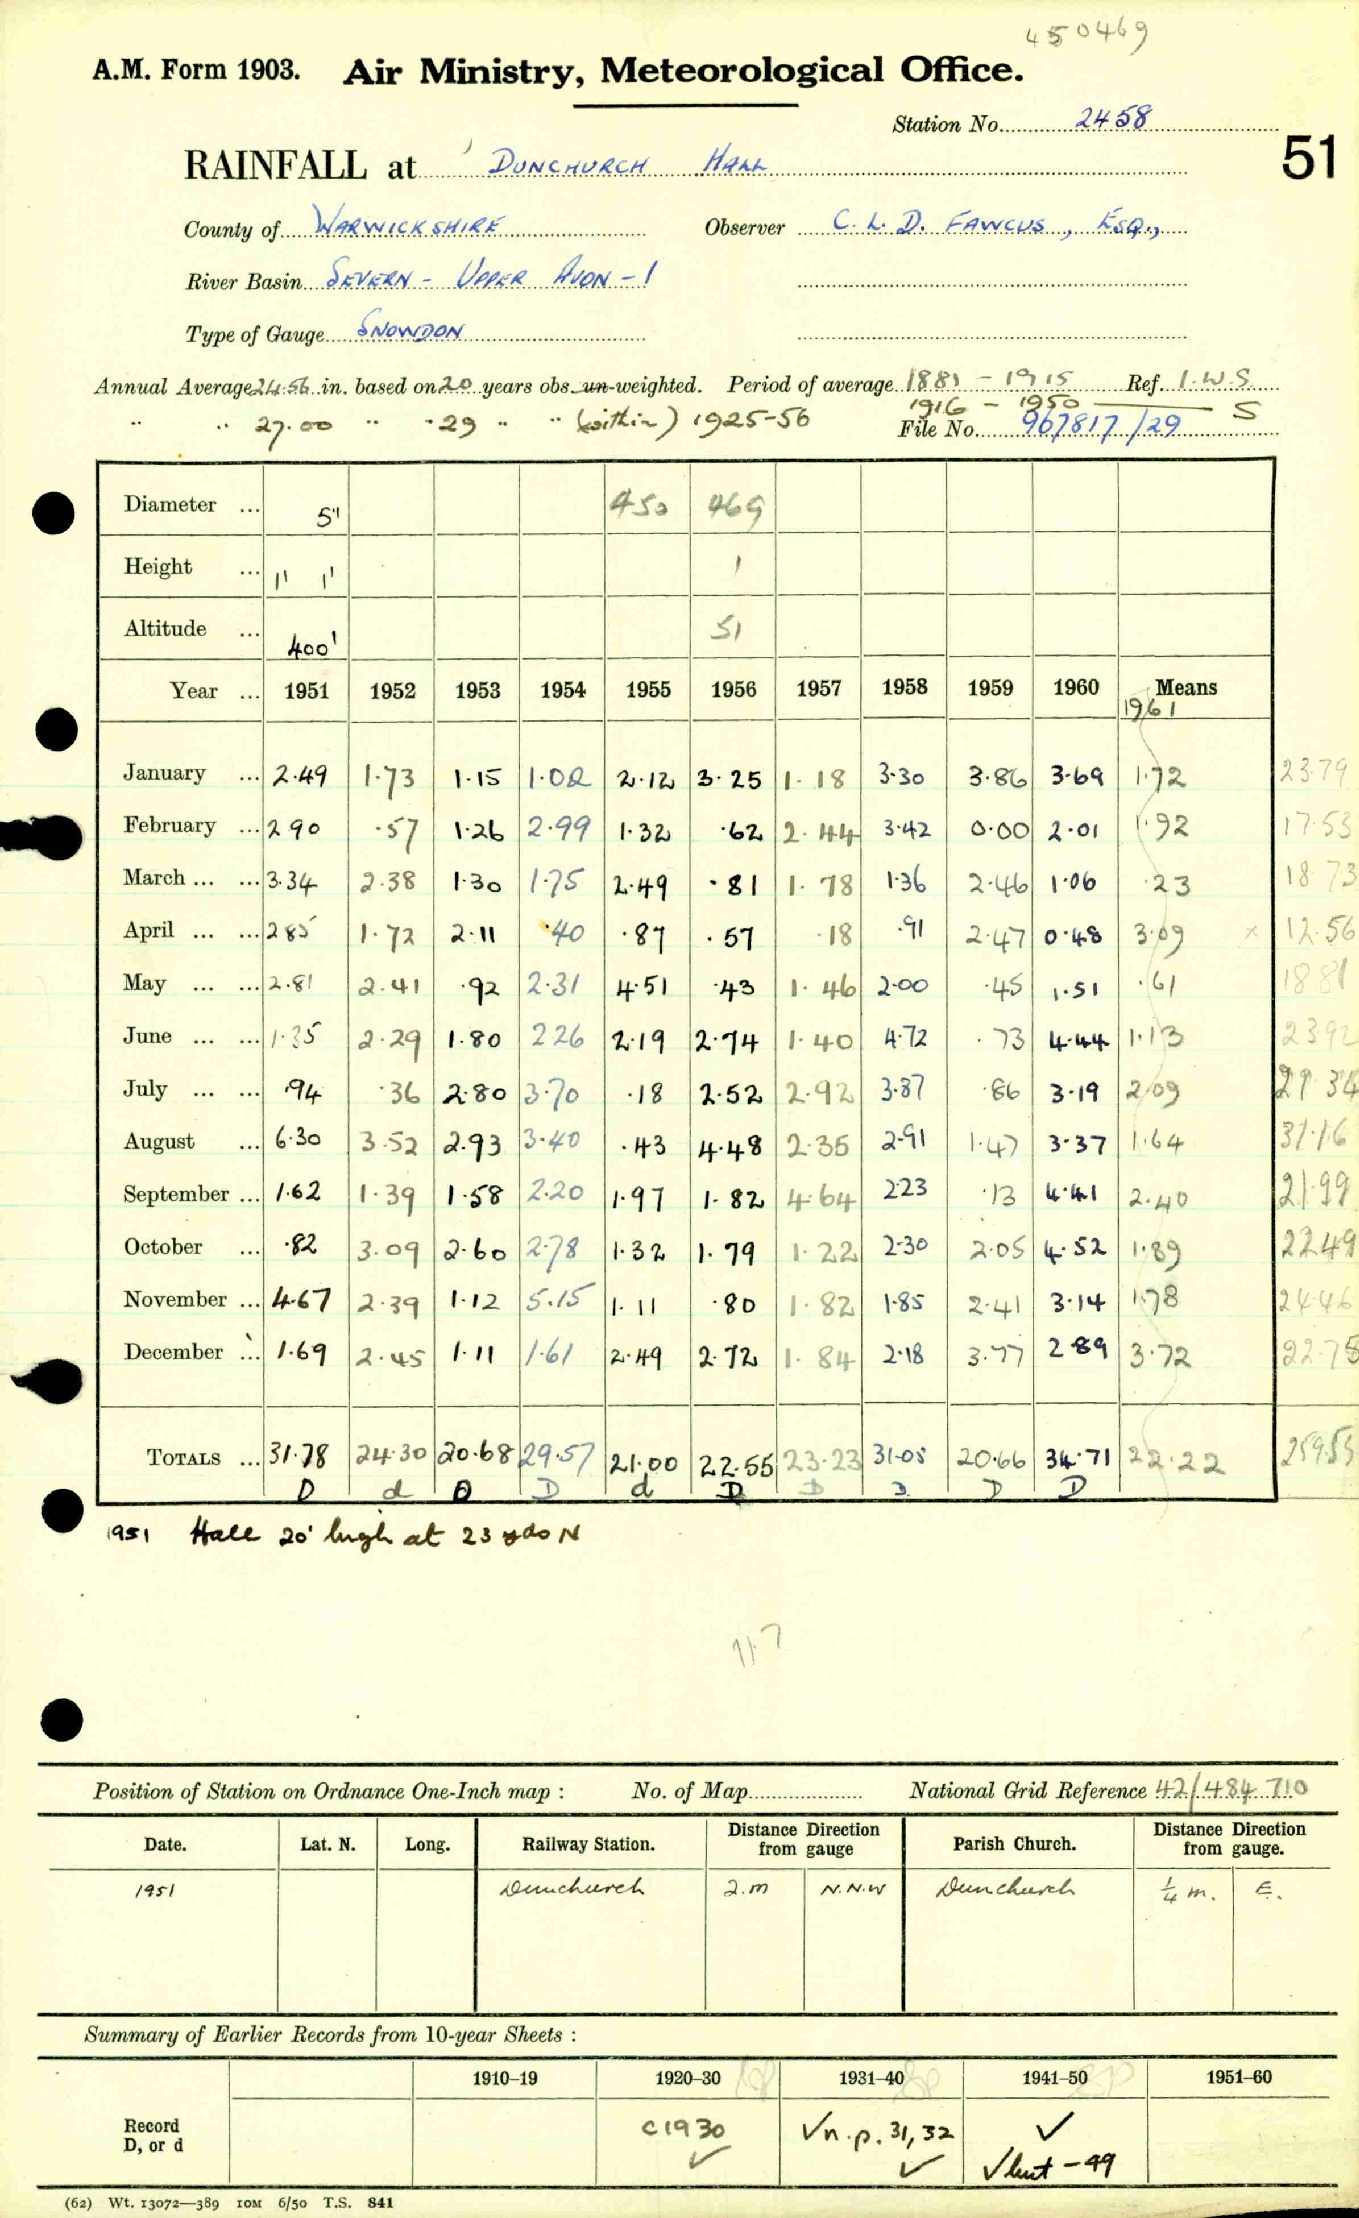 450469
A.M. Form 1903. Air Ministry, Meteorological Office.
Station No. 2458
51
RAINFALL at DUNCHURCH HALL
County of WARWICKSHIRE Observer C. L. D. FAWCUS, ESQ.,
River Basin SEVERN - UPPER AVON - 1
Type of Gauge SNOWDON
Annual Average 24.56 in. based on 20 years obs. un-weighted. Period of average 1881 - 1915 Ref. I.W.S.
1916 - 1950 S
" " 27.00 " 29 " " (within) 1925-56 File No. 967817/29
Diameter ... 5" 450 469
Height ... 1' 1' 1
Altitude ... 400' 51
Year ... 1951 1952 1953 1954 1955 1956 1957 1958 1959 1960 Means
1961
January ... 2.49 1.73 1.15 1.02 2.12 3.25 1.18 3.30 3.86 3.69 1.72 23.79
February ... 2 90 .57 1.26 2.99 1.32 .62 2.44 3.42 0.00 2.01 1.92 17.53
March ... ... 3.34 2.38 1.30 1.75 2.49 .81 1.78 1.36 2.46 1.06 .23 18.73
April ... ... 2 85 1.72 2.11 .40 .87 .57 .18 .91 2.47 0.48 3.09 x 12.56
May ... ... 2.81 2.41 .92 2.31 4.51 .43 1.46 2.00 .45 1.51 .61 18.81
June ... ... 1.35 2.29 1.80 2 26 2.19 2.74 1.40 4.72 .73 4.44 1.13 23.92
July ... ... .94 .36 2.80 3.70 .18 2.52 2.92 3.87 .86 3.19 2.09 21.34
August ... 6.30 3.52 2.93 3.40 .43 4.48 2.35 2.91 1.47 3.37 1.64 31.16
September ... 1.62 1.39 1.58 2.20 1.97 1.82 4.64 2.23 .13 4.41 2.40 21.99
October ... .82 3.09 2.60 2.78 1.32 1.79 1.22 2.30 2.05 4.52 1.89 22.49
November ... 4.67 2.39 1.12 5.15 1.11 .80 1.82 1.85 2.41 3.14 1.78 24.46
December ... 1.69 2.45 1.11 1.61 2.49 2.72 1.84 2.18 3.77 2 89 3.72 22.75
TOTALS ... 31.78 24.30 20.68 29.57 21.00 22.55 23.23 31.05 20.66 34.71 22.22 259.53
D d D D d D D D D D
1951 Hall 20' high at 23 yds N
117
Position of Station on Ordnance One-Inch map : No. of Map National Grid Reference 42/484 710
Date. Lat. N. Long. Railway Station. Distance Direction from gauge Parish Church. Distance Direction from gauge.
1951 Dunchurch 2.m N.N.W Dunchurch ¼ m. E.
Summary of Earlier Records from 10-year Sheets :
1910–19 1920–30 1931–40 1941–50 1951–60
Record
D, or d
c1930 ✓n.p. 31,32 ✓
✓ ✓ ✓but - 49
(62) Wt. 13072—389 10M 6/50 T.S. 841